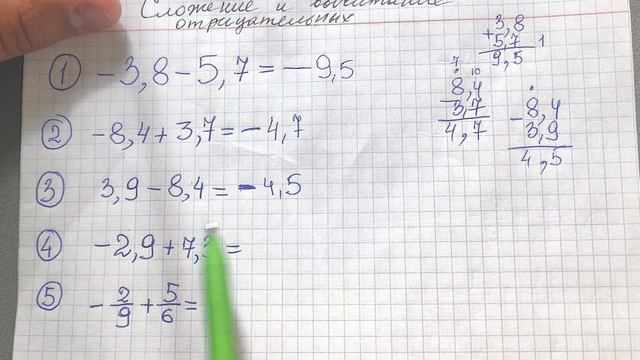 Сложение и вычитание
отрицательных
① -3,8-5,7=-9,5
② -8,4+3,7=-4,7
③ 3,9-8,4=-4,5
④ -2,9+7, =
⑤ -2/9+5/6=
3,8
+5,7 1
9,5
7 10
8,4
-3,7
4,7
-8,4
3,9
4,5